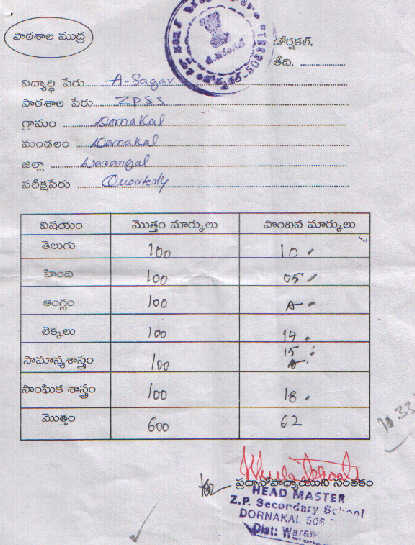 పాఠశాల ముద్ర
డోర్నకల్,
తేది.
విద్యార్థి పేరు A-Sagar
పాఠశాల పేరు Z.P.S.S
గ్రామం Dornakal
మండలం Dornakal
జిల్లా Warangal
పరీక్షపేరు Quarterly
విషయం మొత్తం మార్కులు పొందిన మార్కులు
తెలుగు 100 10
హింది 100 05
ఆంగ్లం 100 A
లెక్కలు 100 14
సామాన్యశాస్త్రం 100 15
సాంఘిక శాస్త్రం 100 18
మొత్తం 600 62
10.33
ప్రధానోపాధ్యాయుని సంతకం
HEAD MASTER
Z.P. Secondary School
DORNAKAL 506
Dist: Waran